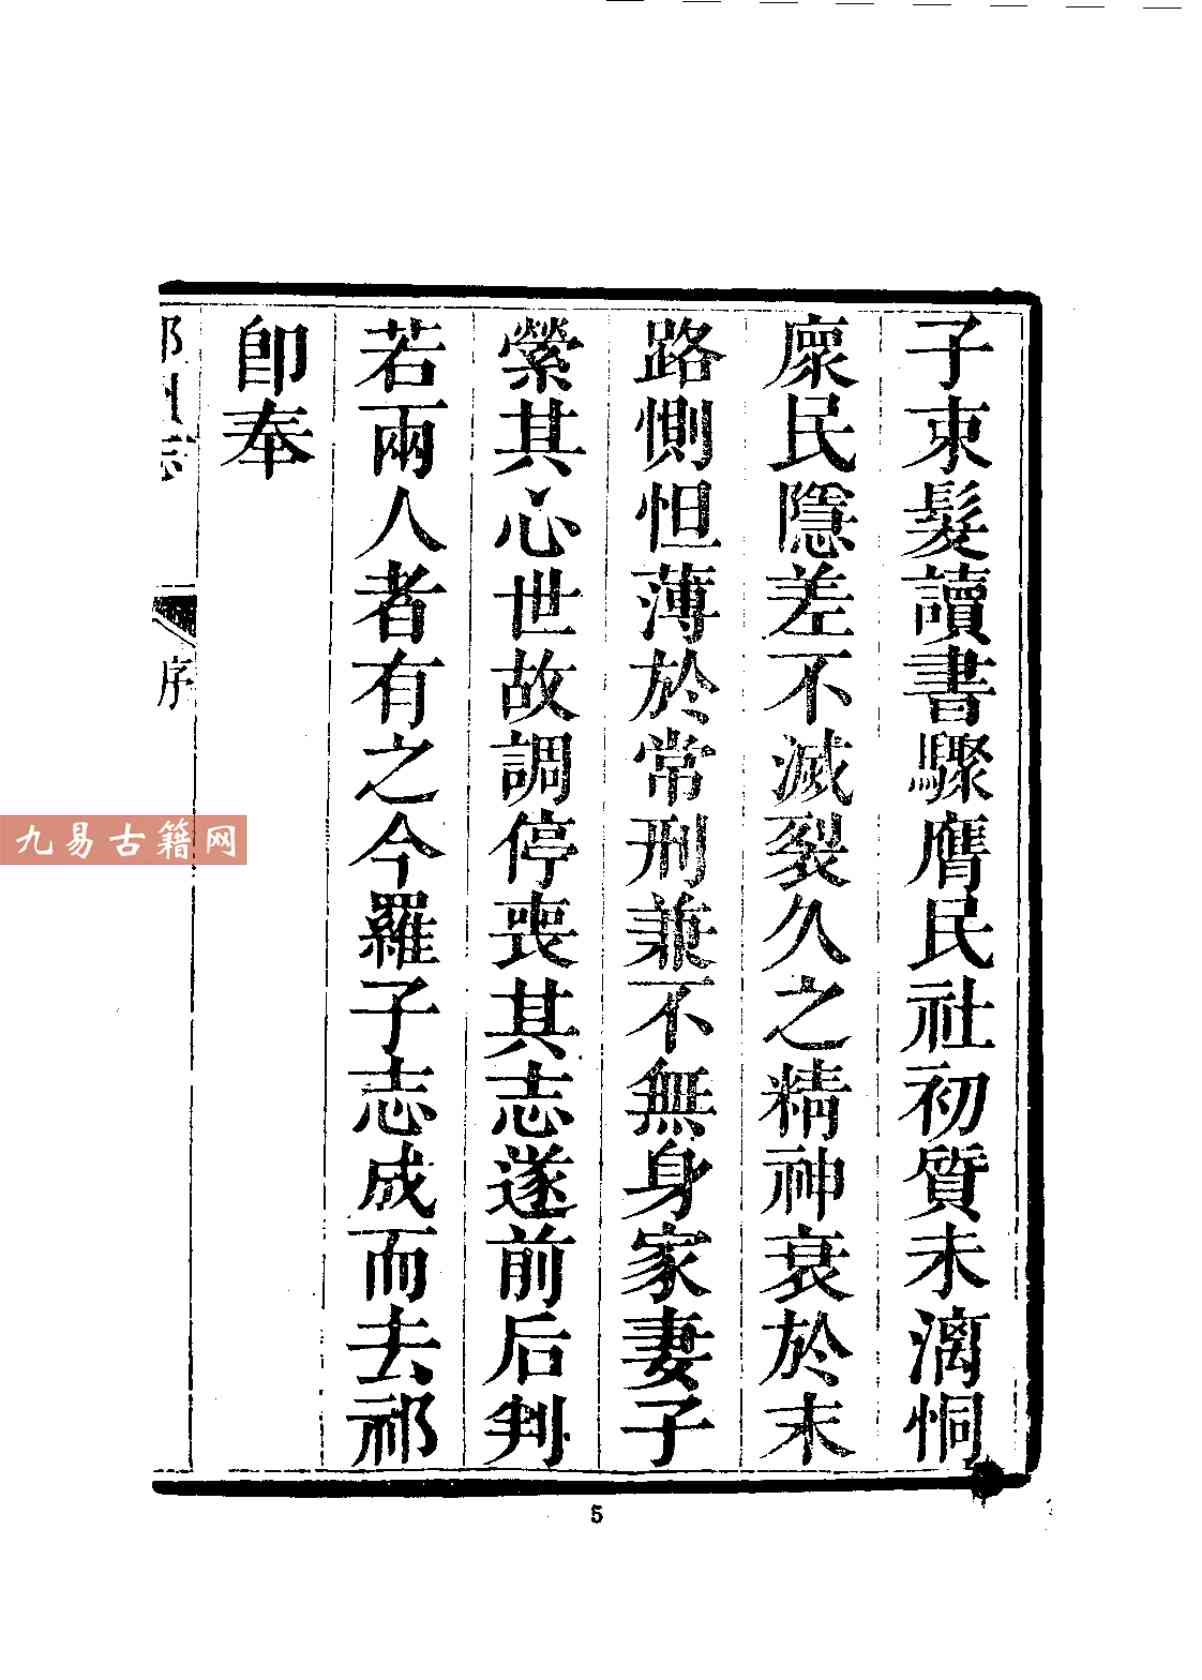 子束髮讀書驟膺民社初質未漓恫
瘝民隱差不滅裂久之精神衰於末
路惻怛薄於常刑兼不無身家妻子
縈其心世故調停喪其志遂前后判
若兩人者有之今羅子志成而去祁
卽奉
序
九易古籍网
5